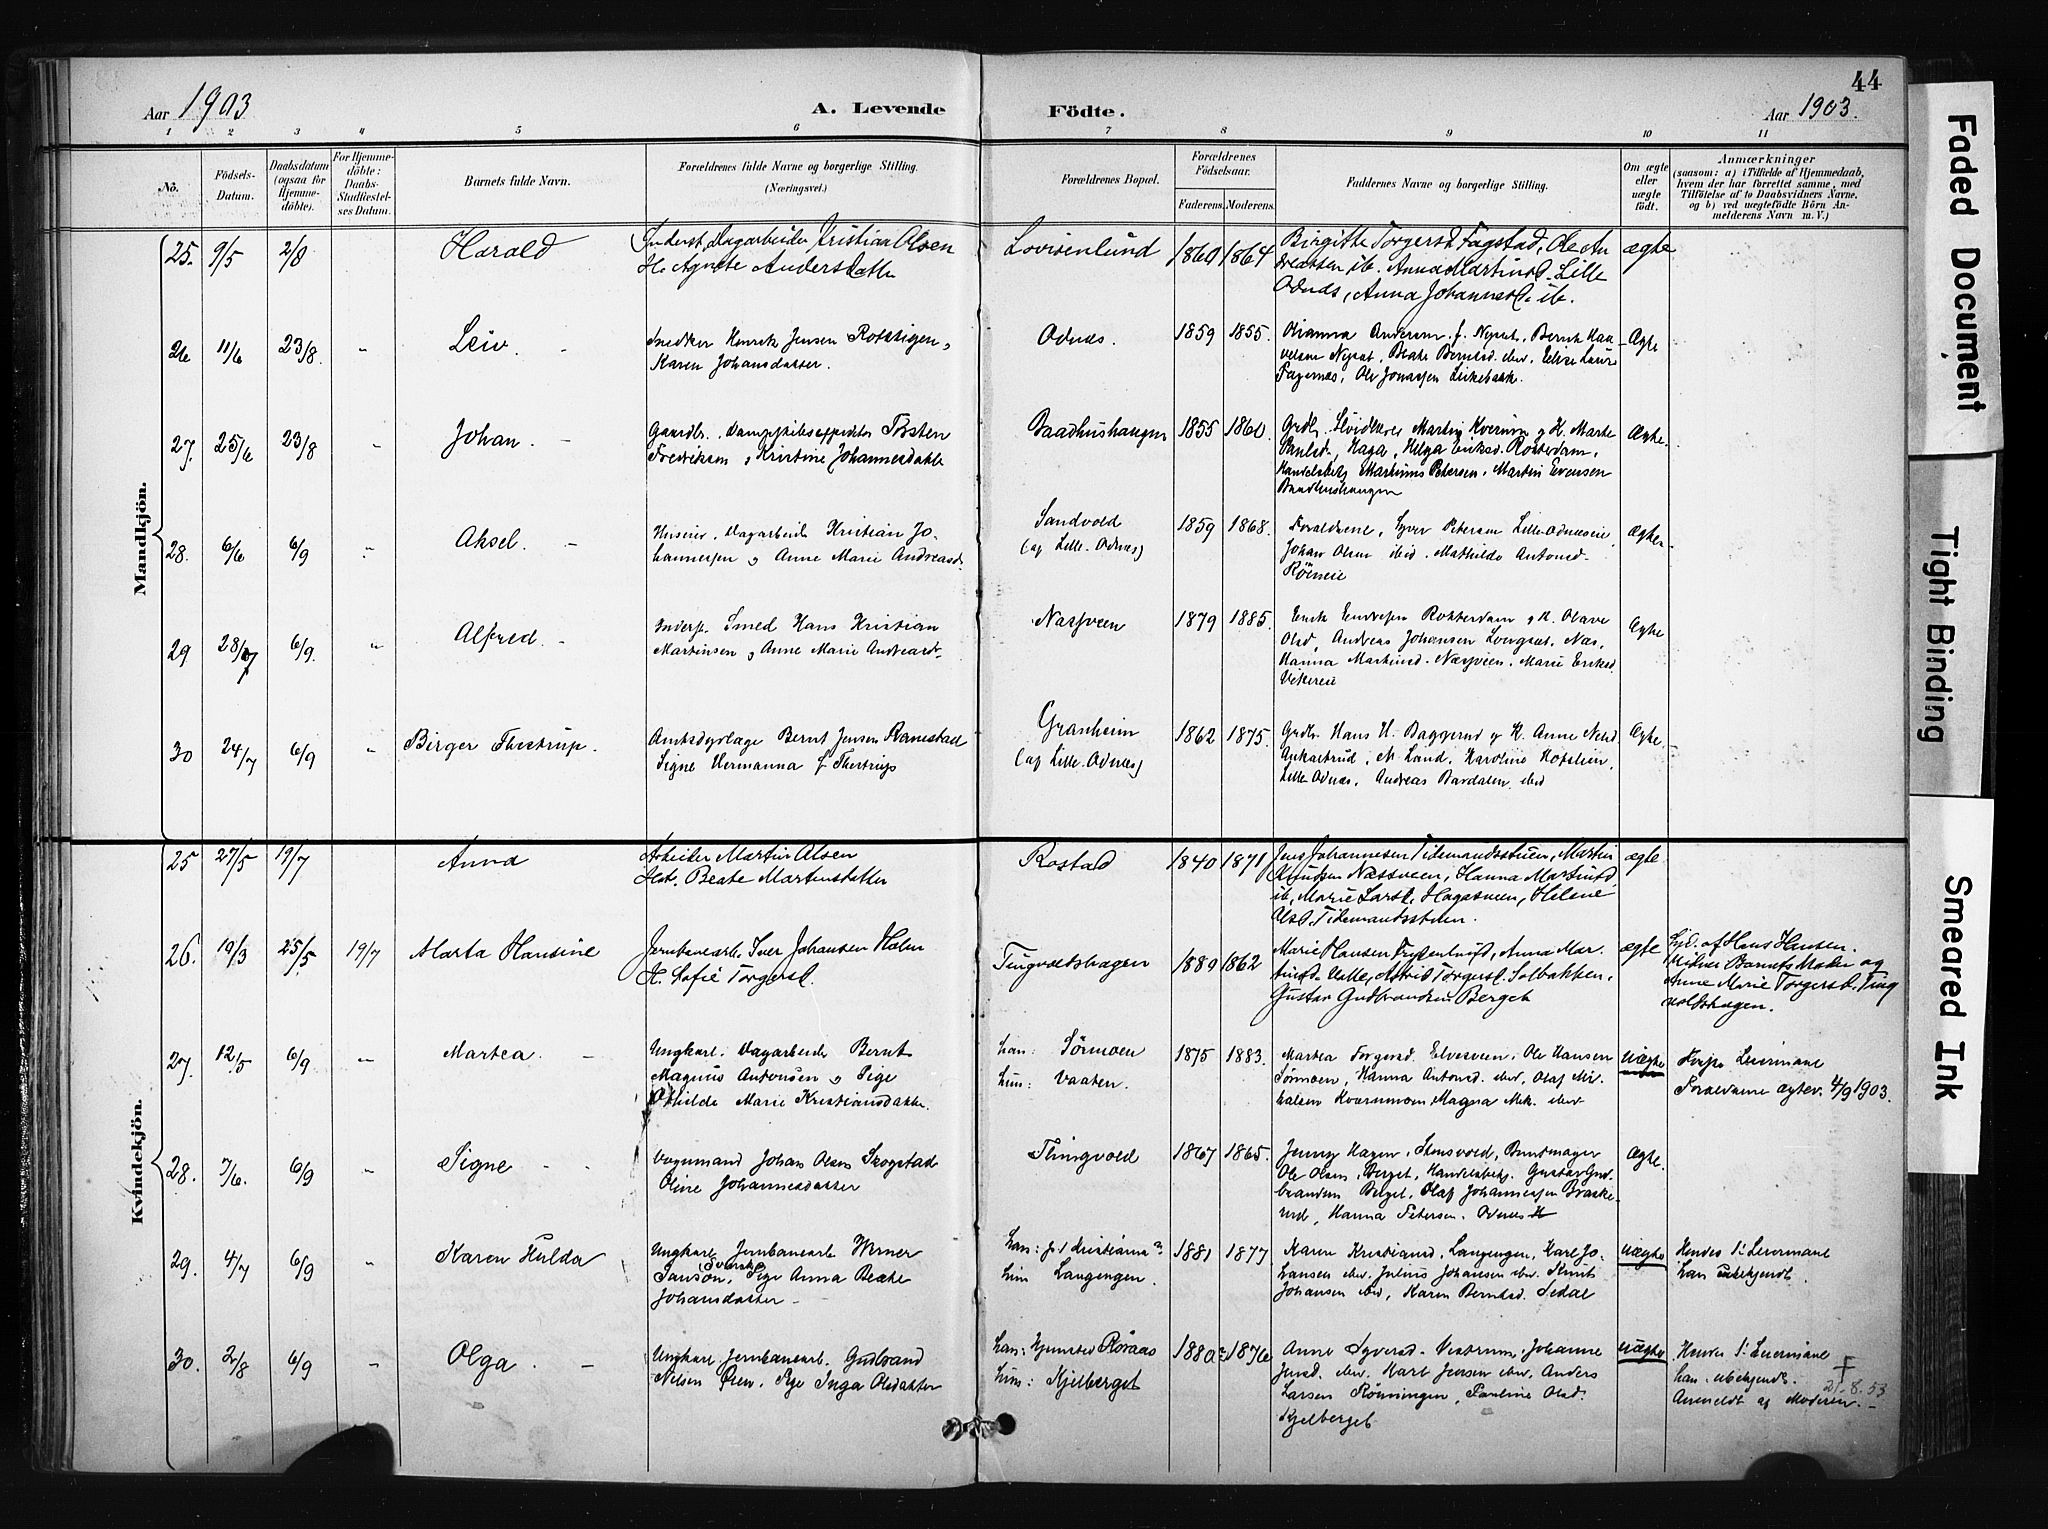 44
Aar 1903
A. Levende Födte.
Aar 1903.
1 2 3 4 5 6 7 8 9 10 11
No.
Födsels-Datum.
Daabsdatum (ogsaa for Hjemme-döbte).
For Hjemme-döbte: Daabs-Stadfæstel-ses Datum.
Barnets fulde Navn.
Forældrenes fulde Navne og borgerlige Stilling.
(Næringsvei.)
Forældrenes Bopæl.
Forældrenes Födselsaar.
Faderens. Moderens.
Faddernes Navne og borgerlige Stilling.
Om ægte eller uægte födt.
Anmærkninger
(saasom: a) i Tilfælde af Hjemmedaab,
hvem der har forrettet samme, med
Tilföielse af to Daabsvidners Navne,
og b) ved uægtefödte Börn An-
melderens Navn m. V.)
Mandkjön.
25. 9/5 2/8 Harald
Inderst, Dagarbeider Kristian Olsen
H. Agnete Andersdatter
Lovisenlund 1860 1864
Birgitte Torgersd. Fagstad, Ole An
dreassen ib. Anna Martinsd. Lille
Odnæs, Anna Johannesd. ib.
ægte
26 11/6 23/8. " Leiv.
Snedker Henrik Jensen
Karen Johansdatter.
Odnæs. 1859 1855.
Fagernæs, Ole Jonassen
Ægte
27. 25/6 23/8 " Johan.
Gaardbr.
Fredriksen og Kristine Johannesdatter
Baadhushaugen 1855 1860.
Martin Kvernum og K. Marte
Paulsd., Haga, Helga Eriksd. Rotterdam,
Handelsbetj. Petersen, Martin Evensen
Baadhushaugen
Ægte.
28. 6/6 6/9 " Aksel.
Dagarbeider Kristian Jo-
hannessen og Anne Marie Andreasd.
Sandvold
(af Lille-Odnæs)
1859 1868.
Forældrene, Syver Petersen Lille-Odnæseie,
Johan Olsen ibid. Mathilde Antonsd.
Ægte.
29 28/7 6/9. " Alfred.
Inders. Smed Hans Kristian
Martinsen og Anne Marie Andreasd.
Næsveen 1879 1885.
Rotterdam og K. Olave
Olsd, Andreas Johansen Næs,
Hanna Martinsd. Næsveen. Marie Eriksd.
Ægte
30 24/7 6/9 " Birger Thestrup.
Amtsdyrlæge Bernt Jensen Ramstad
Signe Hermanna f. Thestrup
Granheim
(af Lille-Odnæs)
1862 1875.
Grdbr. Hans H. Baggerud og K. Anne
N. Land, Karoline
Lille Odnæs, Andreas Bardalen ibid
Ægte.
Kvindekjön.
25 27/5 19/7 Anna
Arbeider Martin Olsen
Hst. Beate Martinsdatter
Rostad 1840 1871
Jens Johannesen Tidemandsstuen, Martin
Knudsen Næsveen, Hanna Martinsd.
ib, Marie Larsd. Hagasveen, Helene
Olsd. Tidemandsstuen.
ægte
26. 19/3 25/5 19/7 Marta Hansine
Jernbanearb. Iver Johansen Holen
H. Sofie Torgersd.
Tingvoldshagen 1889 1862
Marie Hansen Anna Mar-
tinsd. Astrid Torgersd. Solbakken,
Gustav Gudbrandsen Berget
ægte
Hjd. af Hans Hansen.
Vidner Barnets Moder og
Anne Marie Torgersd. Ting
voldshagen.
27. 12/5 6/9 " Martea.
Ungkarl. Dagarbeider Bernt
Magnus Antonsen og Pige
Othilde Marie Kristiansdatter.
han: Sörmoen
hun: Vaaten.
1875 1883.
Martea Torgersd. Elvesveen. Ole Hansen
Sörmoen, Hanna Antonsd. ibid, Olaf Mi-
kalsen Kværnmoen, Magna Mik. ibid
uægte
Leiermaal
Forældrene ægtev. 4/9 1903.
28. 7/6. 6/9 " Signe
Vognmand Johan Olsen Skogstad
Oline Johannesdatter
Tingvold 1867 1865.
Jenny Hagen, Bundtmager
Ole Olsen, Berget, Handelsbetj. Gustav Gud-
brandsen Berget, Olaf Johannessen Braske-
rud, Hanna Petersen. Odnæs
Ægte.
29. 4/7 6/9 " Karen Hulda
Ungkarl Jernbanearb. Werner
Janson, (Svensk) Pige Anna Beate
Johansdatter
han: p. t. Kristiania?
hun Langengen.
1881 1877
Karen Kristiansd. Langengen, Karl Jo-
hansen ibid. Julius Johansen ibid. Knut
Johansen ibid, Karen Berntsd. Sedal
uægte
Hendes 1ste Leiermaal
han ubekjendt.
30. 2/8 6/9 " Olga.
Ungkarl Jernbanearb. Gudbrand
Nilsen Pige Inga Olsdatter
han: Röraas
hun: Kjelberget
1880? 1876
Anne Syversd. Vestrum, Johanne
Jensd. ibid. Karl Jensen ibid, Anders
Larsen Rönningen, Pauline Olsd.
Kjelberget
uægte
Hendes 1ste Leiermaal
han ubekjendt.
Anmeldt af Moderen.
† 21.8.53
Faded Document
Tight Binding
Smeared Ink